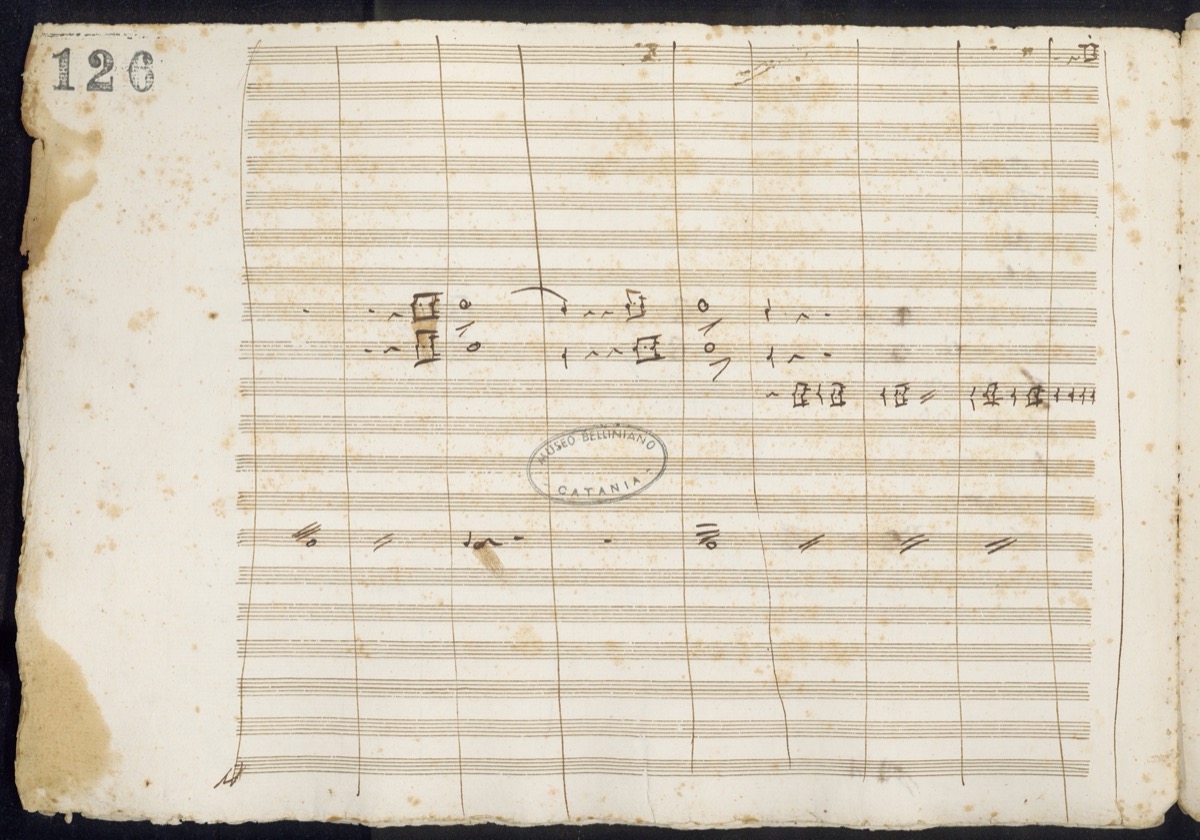 126
MUSEO BELLINIANO
CATANIA